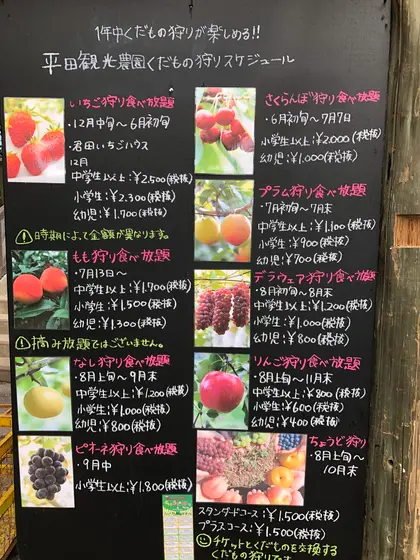 1年中くだもの狩りが楽しめる!!
平田観光農園くだもの狩りスケジュール
いちご狩り食べ放題
・12月中旬〜6月初旬
・君田いちごハウス
12月
中学生以上:¥2.500(税抜)
小学生:¥2.300(税抜)
幼児:¥1.700(税抜)
!時期によって金額が異なります。
もも狩り食べ放題
・7月13日〜
中学生以上:¥1,700(税抜)
小学生:¥1.500(税抜)
幼児:¥1.300(税抜)
!摘み放題ではございません。
なし狩り食べ放題
・8月上旬〜9月末
中学生以上:¥1.200(税抜)
小学生:¥1.000(税抜)
幼児:¥800(税抜)
ピオーネ狩り食べ放題
・9月中
小学生以上:¥1.800(税抜)
さくらんぼ狩り食べ放題
・6月初旬〜7月7日
小学生以上:¥2.000(税抜)
幼児:¥1.000(税抜)
プラム狩り食べ放題
・7月初旬〜7月末
中学生以上:¥1,100(税抜)
小学生:¥900(税抜)
幼児:¥700(税抜)
デラウェア狩り食べ放題
・8月初旬〜8月末
中学生以上:¥1.200(税抜)
小学生:¥1.000(税抜)
幼児:¥800(税抜)
りんご狩り食べ放題
・8月上旬〜11月末
中学生以上:¥800(税抜)
小学生:¥600(税抜)
幼児:¥400(税抜)
ちょうど狩り
・8月上旬〜
10月末
スタンダードコース:¥1,500(税抜)
プラスコース:¥1.500(税抜)
チケットとくだものを交換する
くだもの狩りです